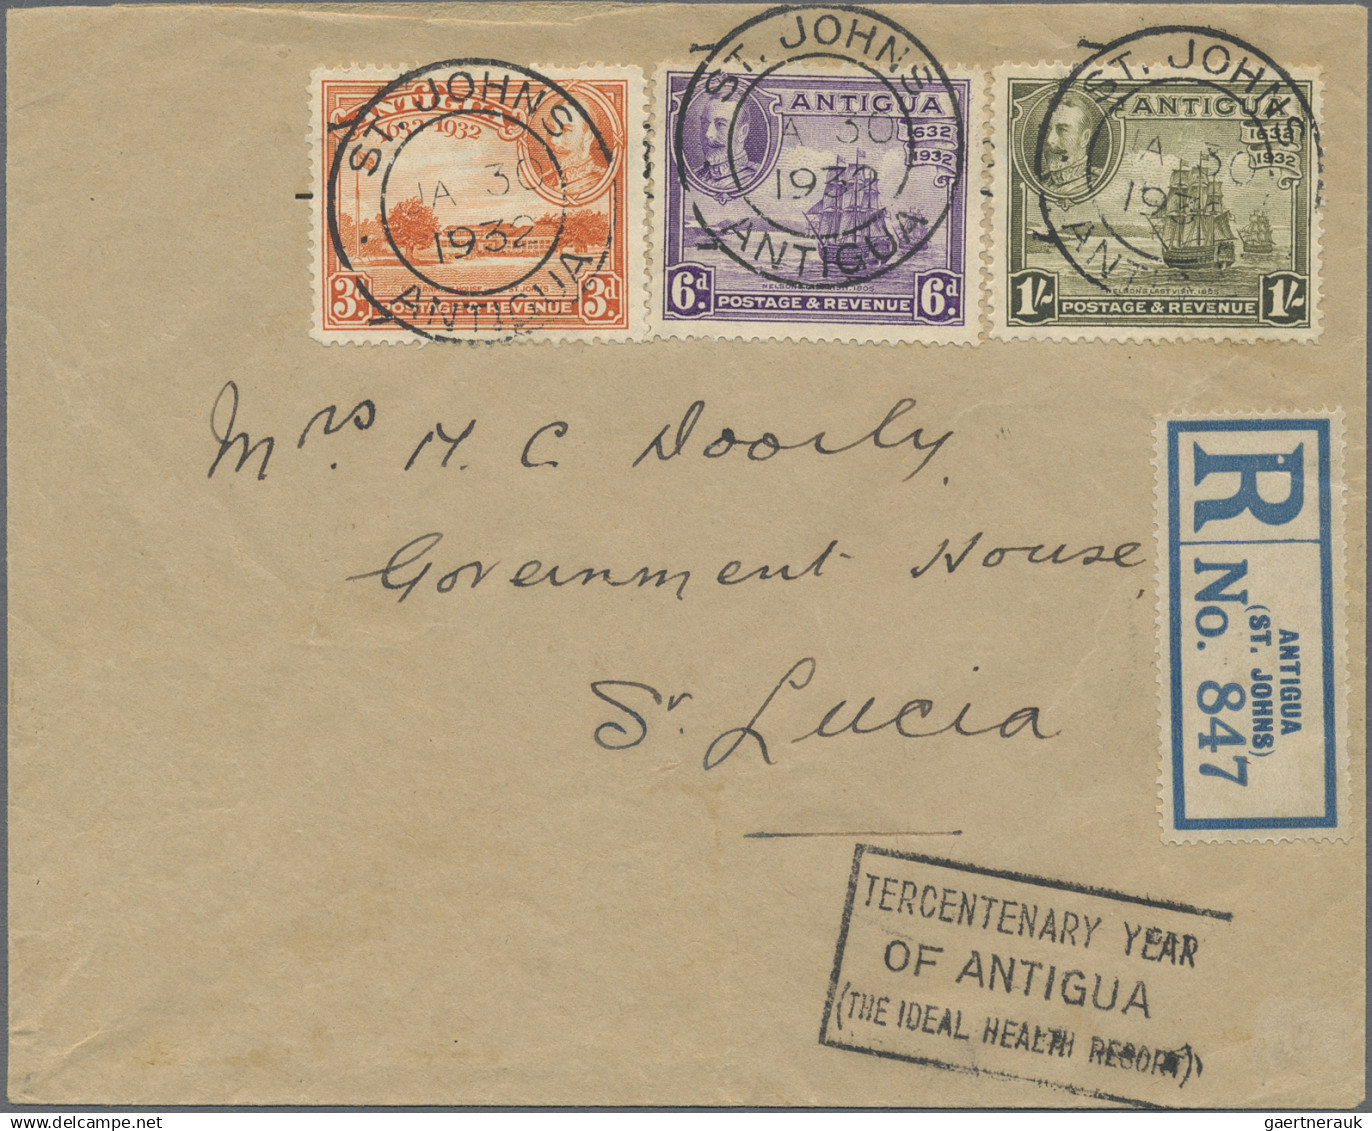 ANTIGUA
1632-1932
3d. 3d.
POSTAGE & REVENUE
ST. JOHNS
JA 30
1932
ANTIGUA
ANTIGUA
1632
1932
NELSON'S LAST VISIT, 1805
6d. 6d.
POSTAGE & REVENUE
ST. JOHNS
JA 30
1932
ANTIGUA
ANTIGUA
1632
1932
NELSON'S LAST VISIT, 1805
1/- 1/-
POSTAGE & REVENUE
ST. JOHNS
JA 30
Mrs. H. C. Doorly,
Government House,
St. Lucia
R
ANTIGUA
(ST. JOHNS)
No. 847
TERCENTENARY YEAR
OF ANTIGUA
(THE IDEAL HEALTH RESORT)
gaertnerauk